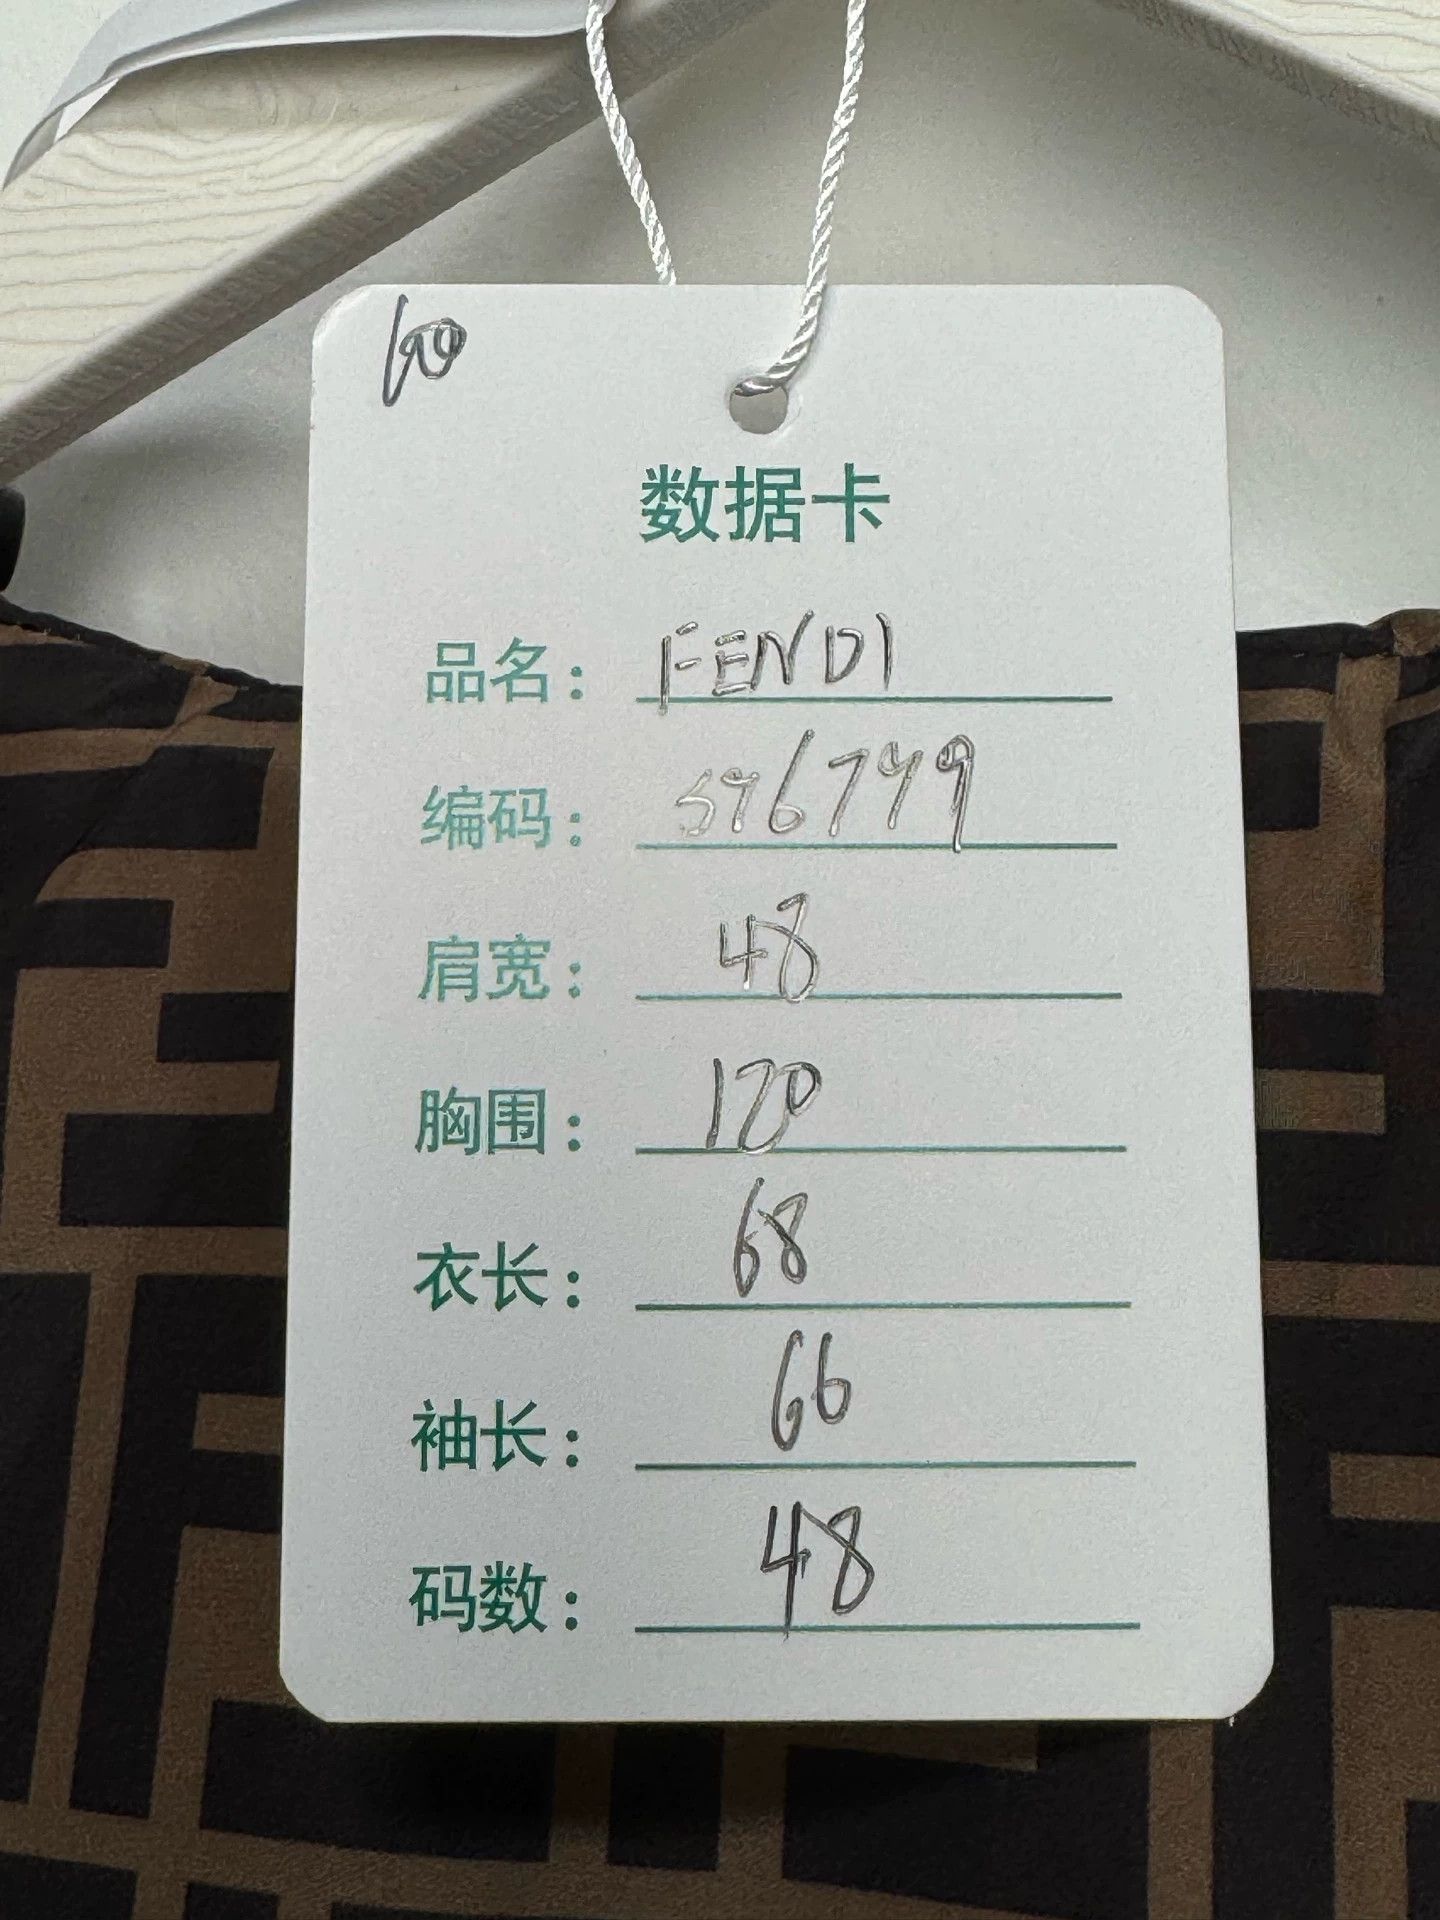 60
数据卡
品名: FENDI
编码: 596749
肩宽: 48
胸围: 120
衣长: 68
袖长: 66
码数: 48